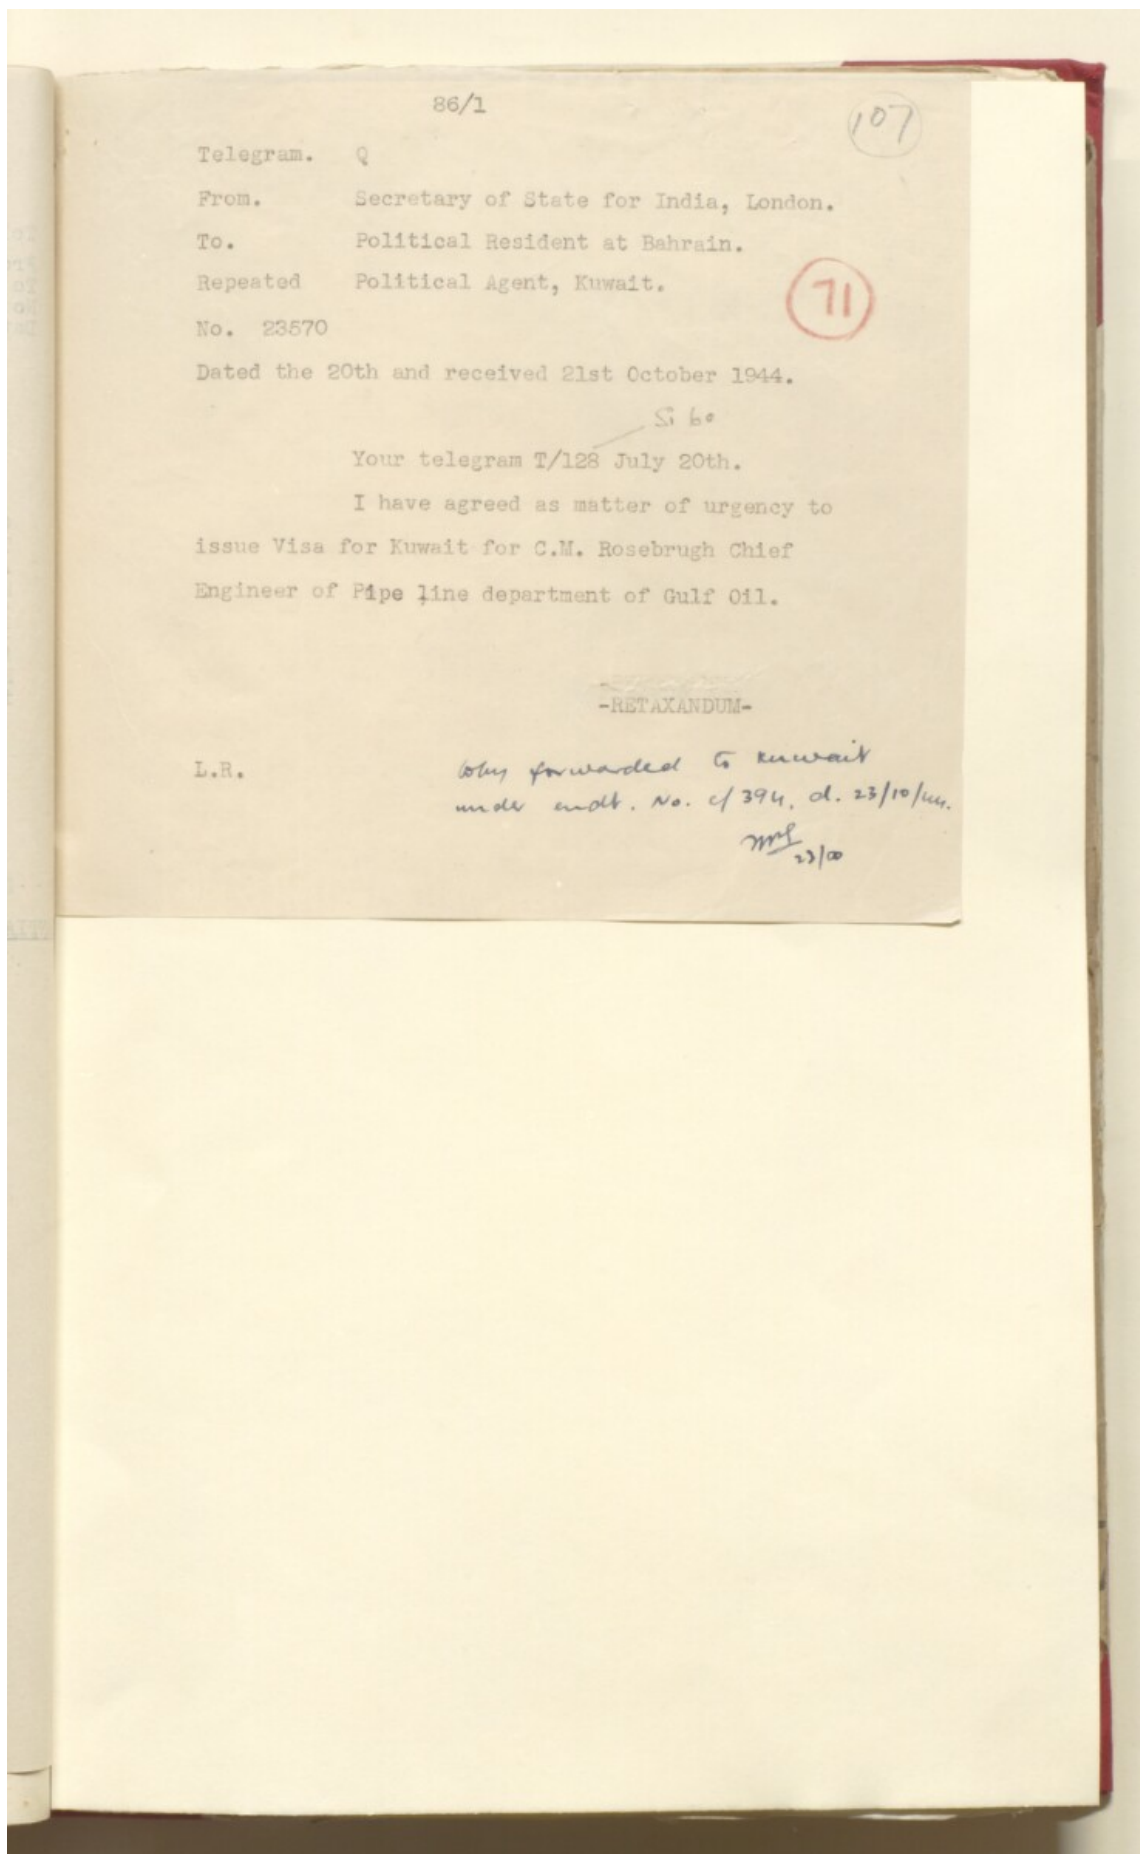 86/1
107
Telegram. Q
From. Secretary of State for India, London.
To. Political Resident at Bahrain.
Repeated Political Agent, Kuwait.
71
No. 23570
Dated the 20th and received 21st October 1944.
S; 60
Your telegram T/128 July 20th.
I have agreed as matter of urgency to
issue Visa for Kuwait for C.M. Rosebrugh Chief
Engineer of Pipe line department of Gulf Oil.
-RETAXANDUM-
L.R.
forwarded to Kuwait
under endt. No. c/394, d. 23/10/44.